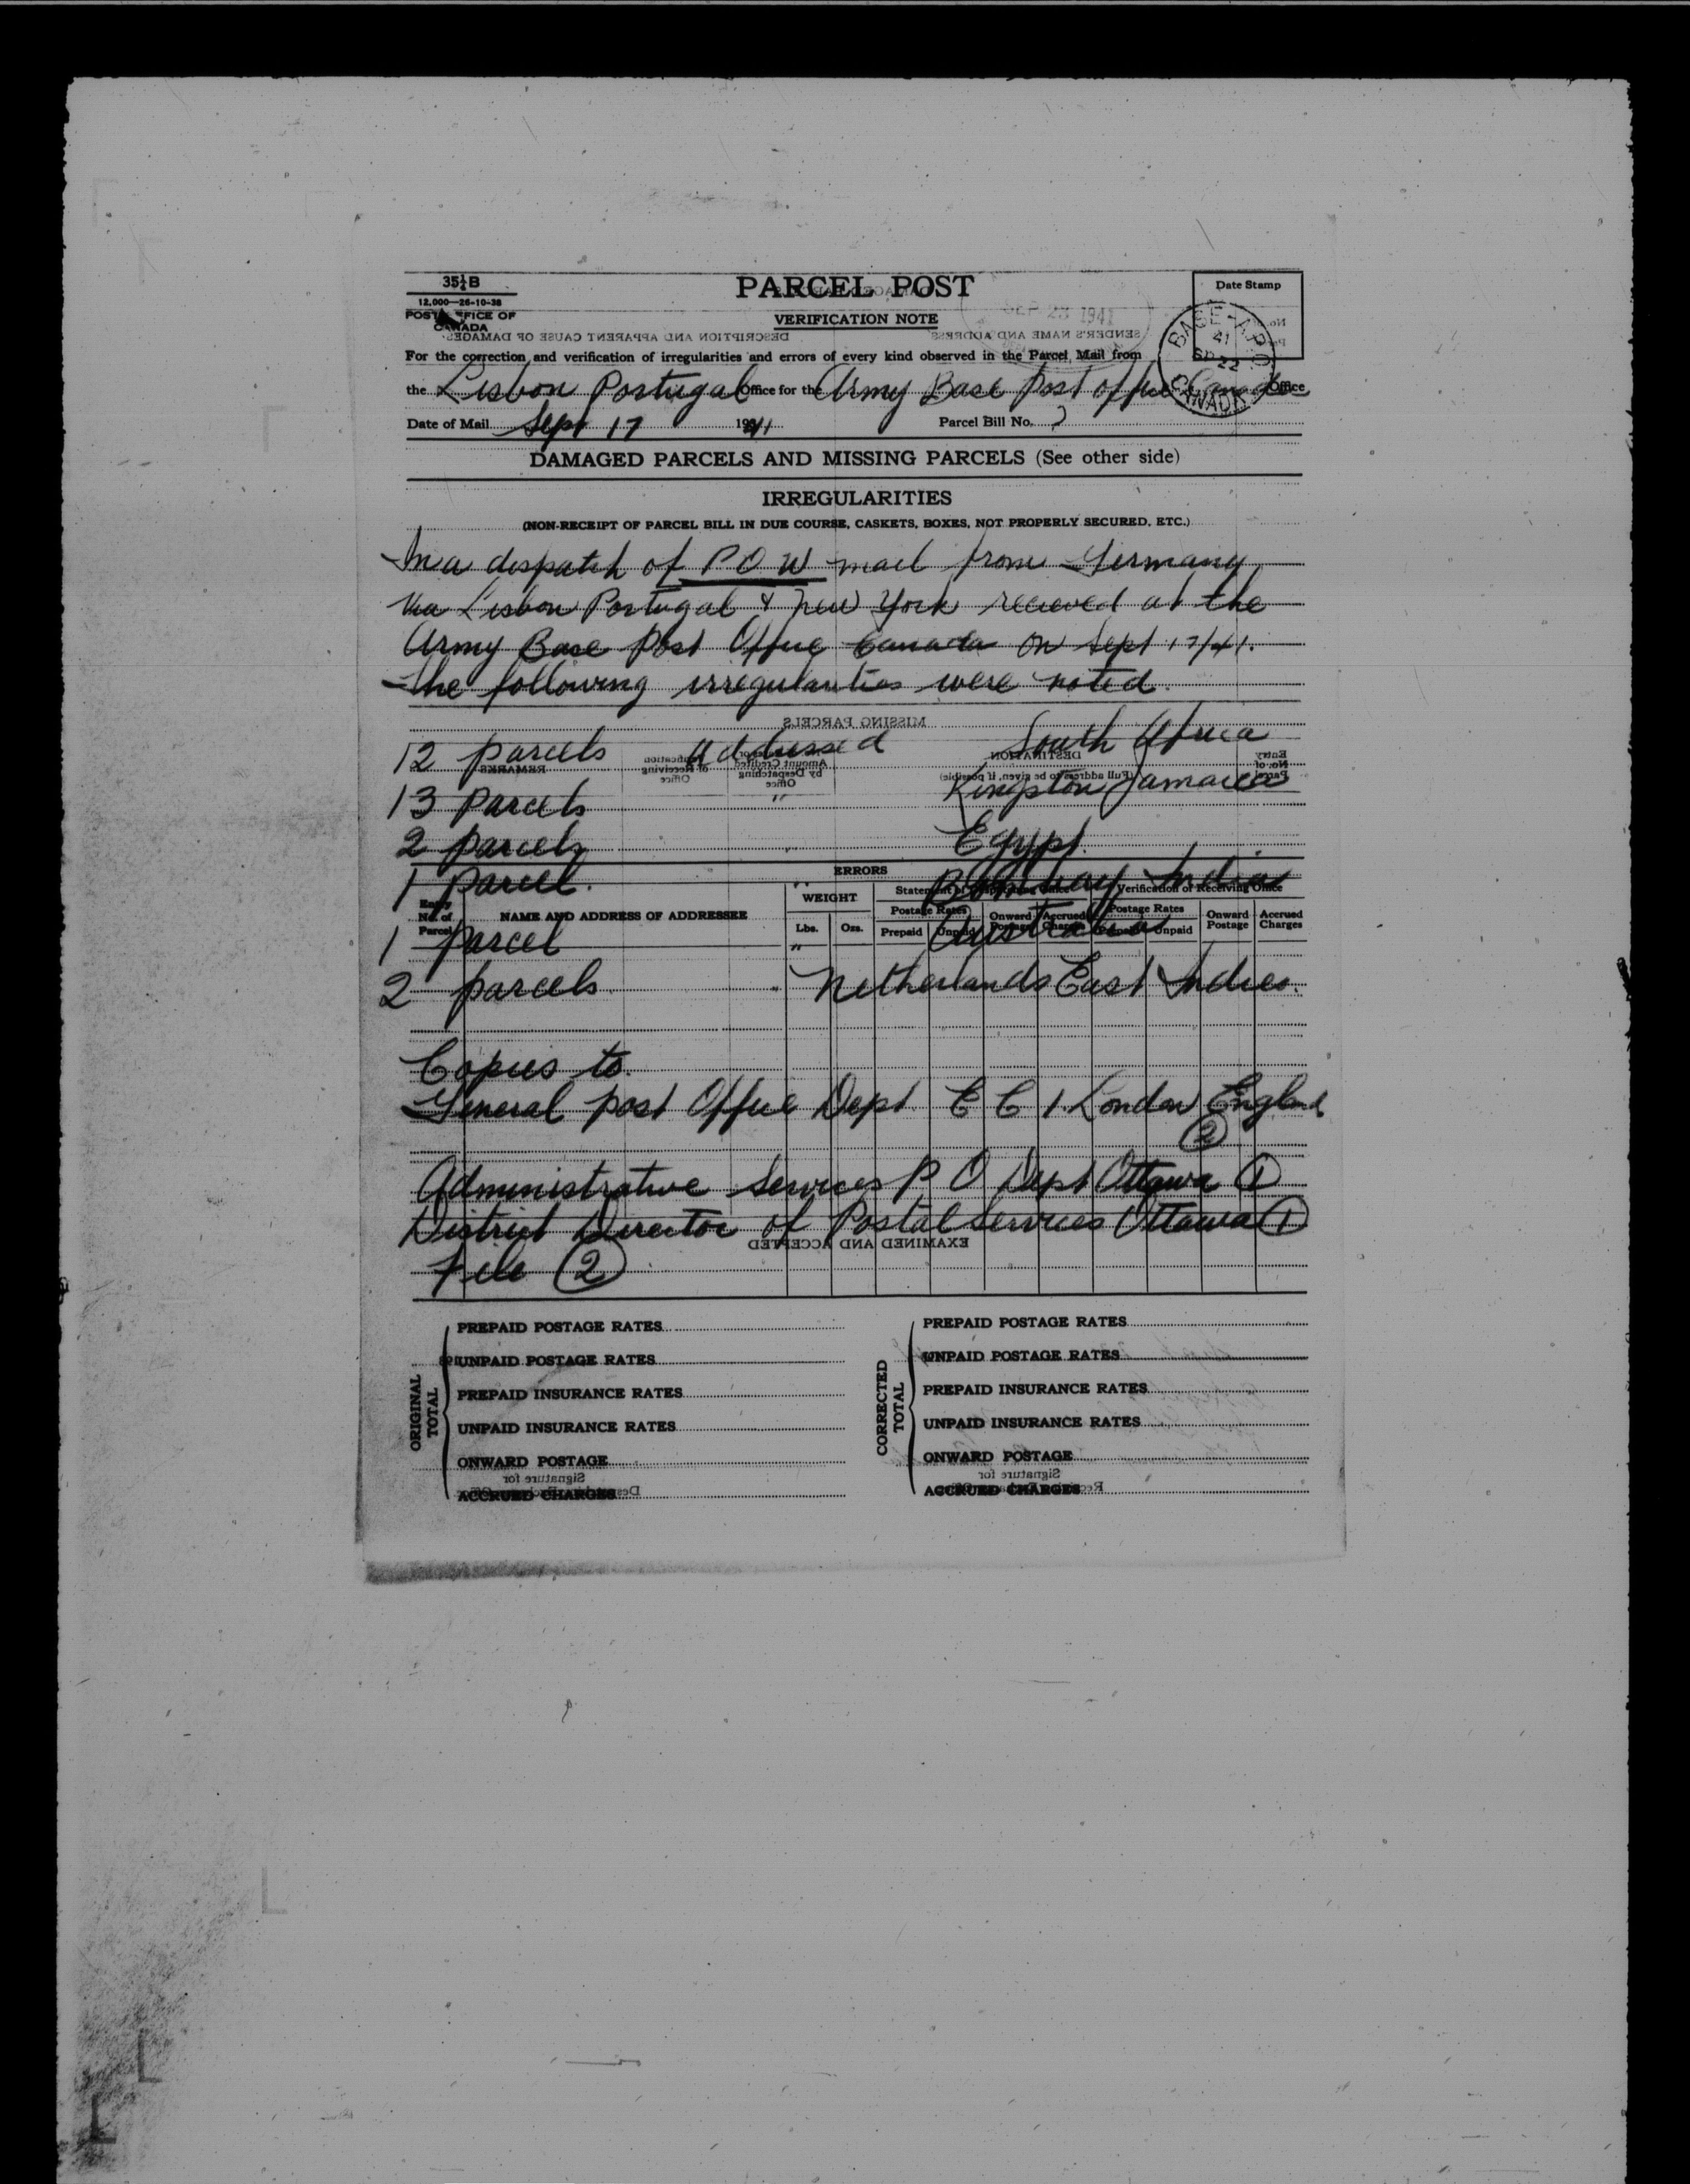 35½B
12,000—26-10-38
POST OFFICE OF
CANADA
PARCEL POST
VERIFICATION NOTE
Date Stamp
SEP 23 1941
BASE A.P.O.
41
SP 22
CANADA
For the correction and verification of irregularities and errors of every kind observed in the Parcel Mail from
the Lisbon Portugal Office for the Army Base Post Office Canada Office
Date of Mail Sept 17 1941 Parcel Bill No. ?
DAMAGED PARCELS AND MISSING PARCELS (See other side)
IRREGULARITIES
(NON-RECEIPT OF PARCEL BILL IN DUE COURSE, CASKETS, BOXES, NOT PROPERLY SECURED, ETC.)
In a dispatch of P O W mail from Germany
Via Lisbon Portugal & New York recieved at the
Army Base Post Office Canada on Sept 17/41.
the following irregularities were noted.
12 parcels addressed South Africa
13 Parcels " Kingston Jamaica
2 parcels " Egypt.
1 Parcel. " Bombay India
ERRORS
Entry No. of Parcel
NAME AND ADDRESS OF ADDRESSEE
WEIGHT
Lbs. Ozs.
Statement of Despatching Office
Postage Rates
Prepaid Unpaid
Onward Postage
Accrued Charges
Verification of Receiving Office
Postage Rates
Prepaid Unpaid
Onward Postage
Accrued Charges
1 Parcel " Australia
2 parcels " Netherlands East Indies.
Copies to.
General Post Office Dept E C 1 London England
2
Administrative Services P O Dept Ottawa 1
District Director of Postal Services Ottawa 1
File 2
ORIGINAL TOTAL
PREPAID POSTAGE RATES
UNPAID POSTAGE RATES
PREPAID INSURANCE RATES
UNPAID INSURANCE RATES
ONWARD POSTAGE
ACCRUED CHARGES
CORRECTED TOTAL
PREPAID POSTAGE RATES
UNPAID POSTAGE RATES
PREPAID INSURANCE RATES
UNPAID INSURANCE RATES
ONWARD POSTAGE
ACCRUED CHARGES